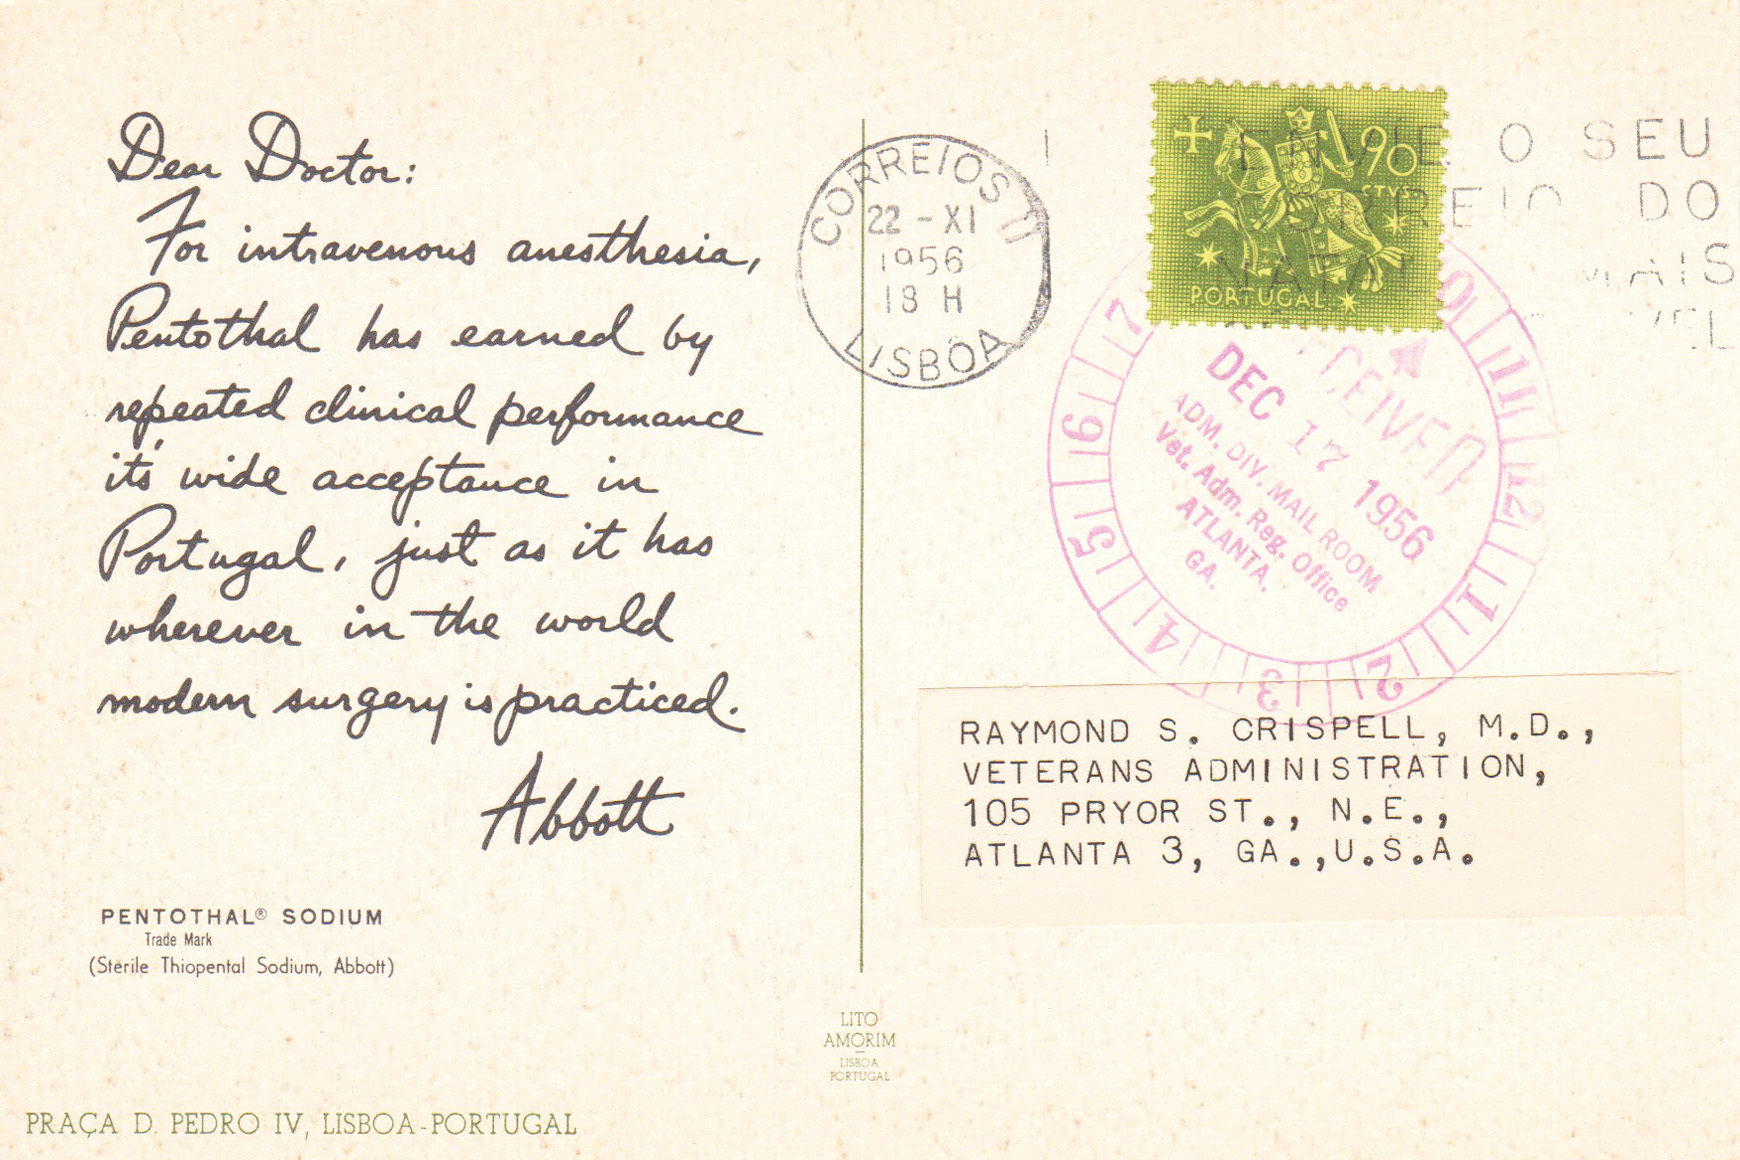 Dear Doctor:
For intravenous anesthesia,
Pentothal has earned by
repeated clinical performance
it's wide acceptance in
Portugal, just as it has
wherever in the world
modern surgery is practiced.
Abbott
PENTOTHAL® SODIUM
Trade Mark
(Sterile Thiopental Sodium, Abbott)
PRAÇA D. PEDRO IV, LISBOA-PORTUGAL
LITO
AMORIM
LISBOA
PORTUGAL
CORREIOS
22-XI
1956
18 H
LISBOA
90
CTVS
PORTUGAL
ENVIE O SEU
CORREIO DO
NATAL MAIS
RECEIVED
DEC 17 1956
ADM. DIV. MAIL ROOM
Vet. Adm. Reg. Office
ATLANTA,
GA.
10 11 12 1 2 3 4 5 6 7
RAYMOND S. CRISPELL, M.D.,
VETERANS ADMINISTRATION,
105 PRYOR ST., N.E.,
ATLANTA 3, GA.,U.S.A.